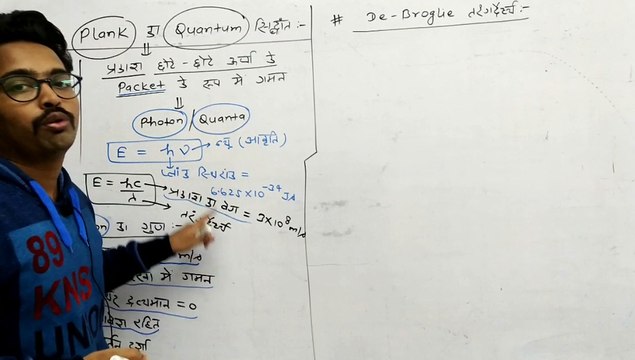 Plank का Quantum सिद्धांत :-
प्रकाश छोटे - छोटे ऊर्जा के
Packet के रूप में गमन
⇓
Photon / Quanta
E = hν → न्यू (आवृति)
प्लांक स्थिरांक =
6.625×10⁻³⁴ JA
E = hc/λ → प्रकाश का वेग = 3×10⁸ m/s
तरंगदैर्ध्य
का गुण :-
m/s
में गमन
द्रव्यमान = 0
रहित
# De-Broglie तरंगदैर्ध्य :-
89
KNS
UN